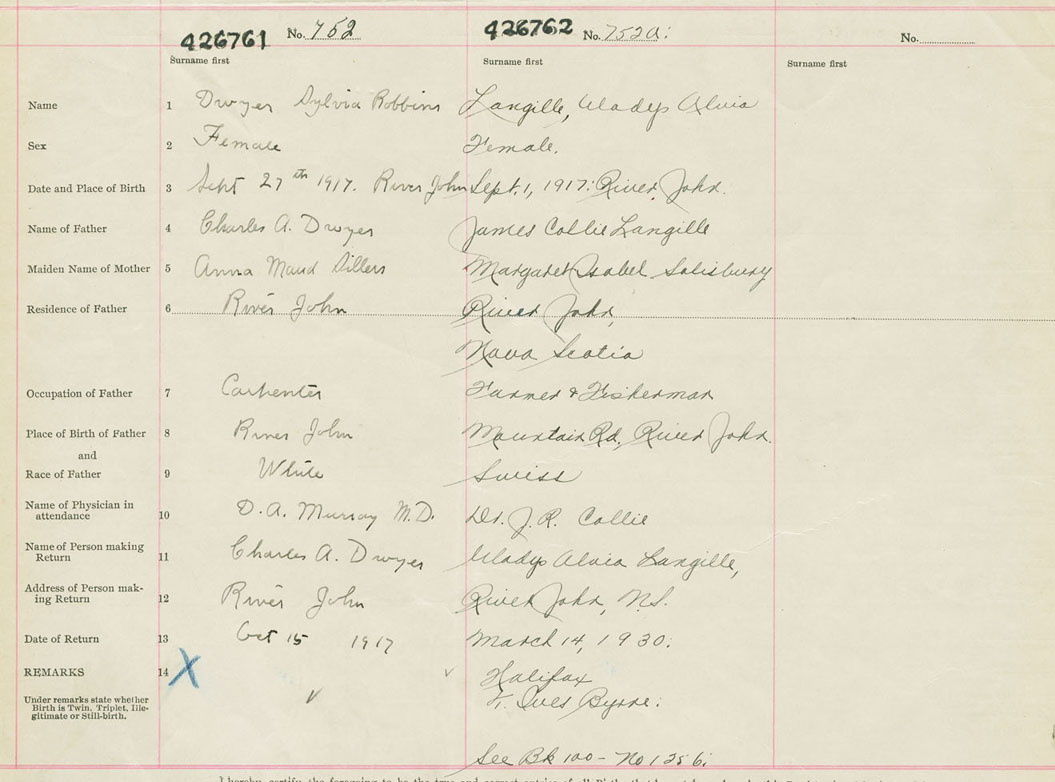 426761 No. 752
426762 No. 752a.
No.
Surname first
Surname first
Surname first
Name 1 Dwyer Sylvia Robbins Langille, Gladys Alvia
Sex 2 Female Female.
Date and Place of Birth 3 Sept 27th 1917. River John Sept. 1, 1917: River John.
Name of Father 4 Charles A. Dwyer James Collie Langille
Maiden Name of Mother 5 Anna Maud Sillers Margaret Isabel Salisbury
Residence of Father 6 River John River John,
Nova Scotia
Occupation of Father 7 Carpenter Farmer & Fisherman
Place of Birth of Father 8 River John Mountain Rd, River John.
and
Race of Father 9 White Swiss
Name of Physician in
attendance 10 D. A. Murray M.D. Dr. J. R. Collie
Name of Person making
Return 11 Charles A. Dwyer Gladys Alvia Langille,
Address of Person mak-
ing Return 12 River John River John, N.S.
Date of Return 13 Oct 15 1917 March 14, 1930.
REMARKS 14 X Halifax
Under remarks state whether
Birth is Twin, Triplet, Ille-
gitimate or Still-birth.
Ives Byrne.
See Bk 100 - No 1256.
I hereby certify, the foregoing to be the true and correct entries of all Births